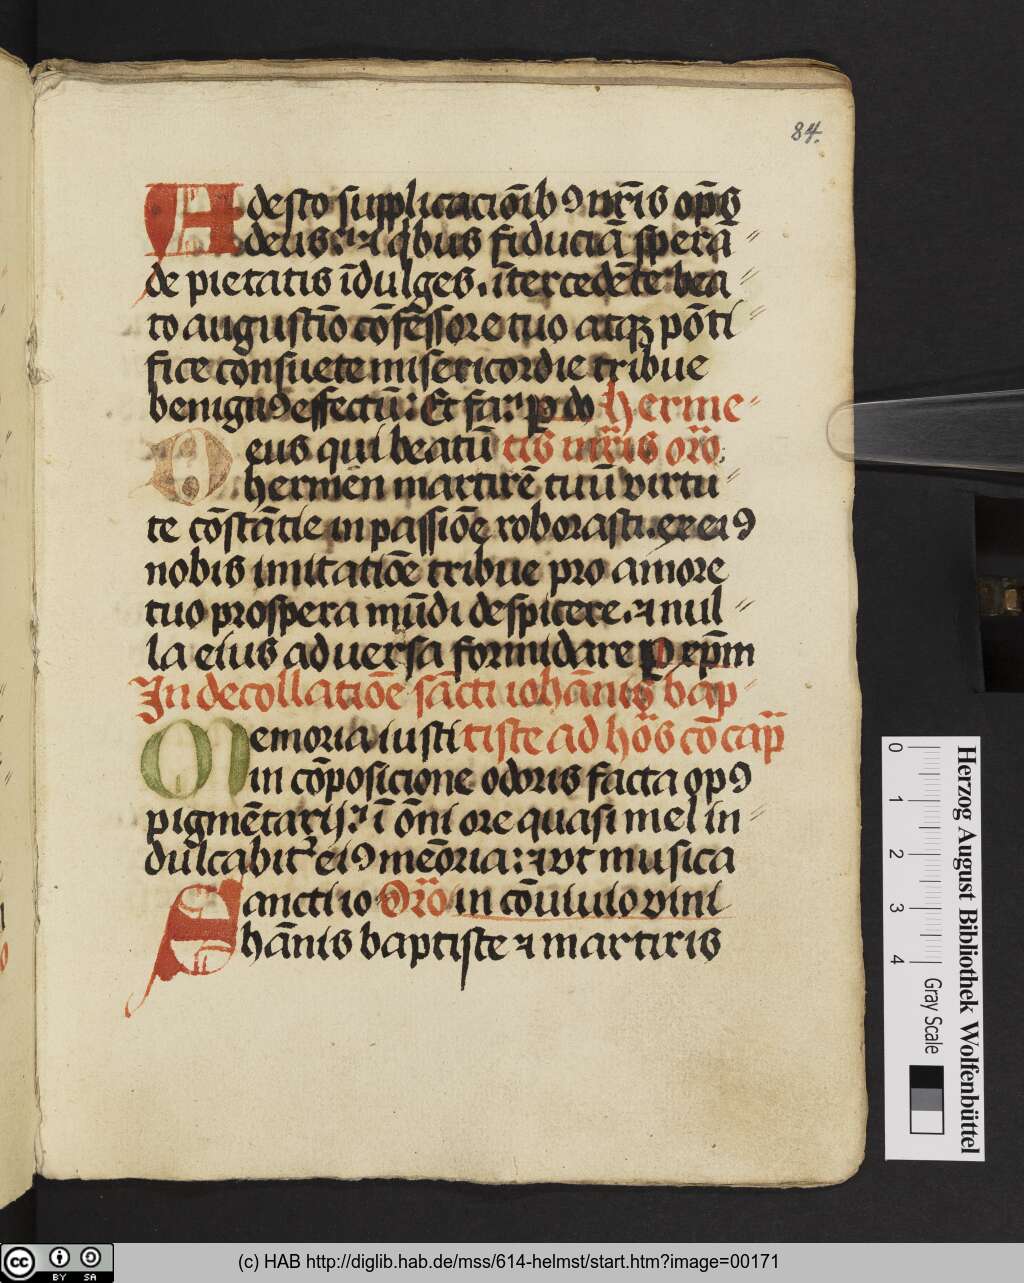 84.
Adesto supplicacōib9 nr̄is op̄s
deus: ⁊ qbus fiduciā sperā〃
de pietatis īdulges. īterccedēte bea〃
to augustīo cōfessore tuo atqꝫ pōti〃
fice consuete misericordie tribue
benign9 effectū: Et fa. ꝑ do Herme〃
Deus qui beatū tis mr̄is orō.
hermen martirē tuū virtu〃
te cōstātie in passiōe roborasti. ex ei9
nobis imitatiōe tribue pro amore
tuo prospera mūdi despicere. ⁊ nul〃
la eius aduersa formidare ꝑ xp̄m
In decollatiōe sācti iohānis bap〃
Memoria iusti tiste ad hōs cō cap̄
in cōposicione odoris facta op9
pigmētarij: ī ōni ore quasi mel in〃
dulcabit᷑ ei9 meōria: ⁊ vt musica
Sancti io Orō in cōuiuio vini
hānis baptiste ⁊ martiris
Herzog August Bibliothek Wolfenbüttel
0 1 2 3 4 Gray Scale
cc BY SA
(c) HAB http://diglib.hab.de/mss/614-helmst/start.htm?image=00171